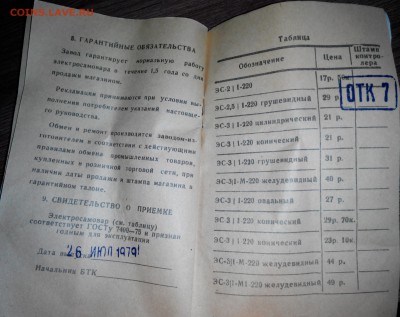 COINS.LAVE.RU
8. ГАРАНТИЙНЫЕ ОБЯЗАТЕЛЬСТВА
Завод гарантирует нормальную работу
электросамовара в течение 1,5 года со дня
продажи магазином.
Рекламации принимаются при условии вы-
полнения потребителем указаний настояще-
го руководства.
Обмен и ремонт производятся заводом-из-
готовителем в соответствии с действующими
правилами обмена промышленных товаров,
купленных в розничной торговой сети, при
наличии даты продажи и штампа магазина в
гарантийном талоне.
9. СВИДЕТЕЛЬСТВО О ПРИЕМКЕ
Электросамовар (см. таблицу)
соответствует ГОСТу 7400-75 и признан
годным для эксплуатации
Дата 26 ИЮЛ 1979
Начальник БТК
Таблица
Обозначение Цена Штамп контро-лера
ЭС-2/1-220 17р.
ЭС-2,5/1-220 грушевидный 29 р.
ОТК 7
ЭС-3/1-220 цилиндрический 21 р.
ЭС-3/1-220 конический 21 р.
ЭС-3/1-220 грушевидный 31 р.
ЭС-3/1-М-220 желудевидный 40 р.
ЭС-3/1-220 овальный 27 р.
ЭС-2/1-220 конический 29р. 70к.
ЭС-3/1-220 конический 23р. 10к.
ЭС-3/1-М-220 желудевидный 44 р.
ЭС-3/1-М1-220 желудевидный 40 р.